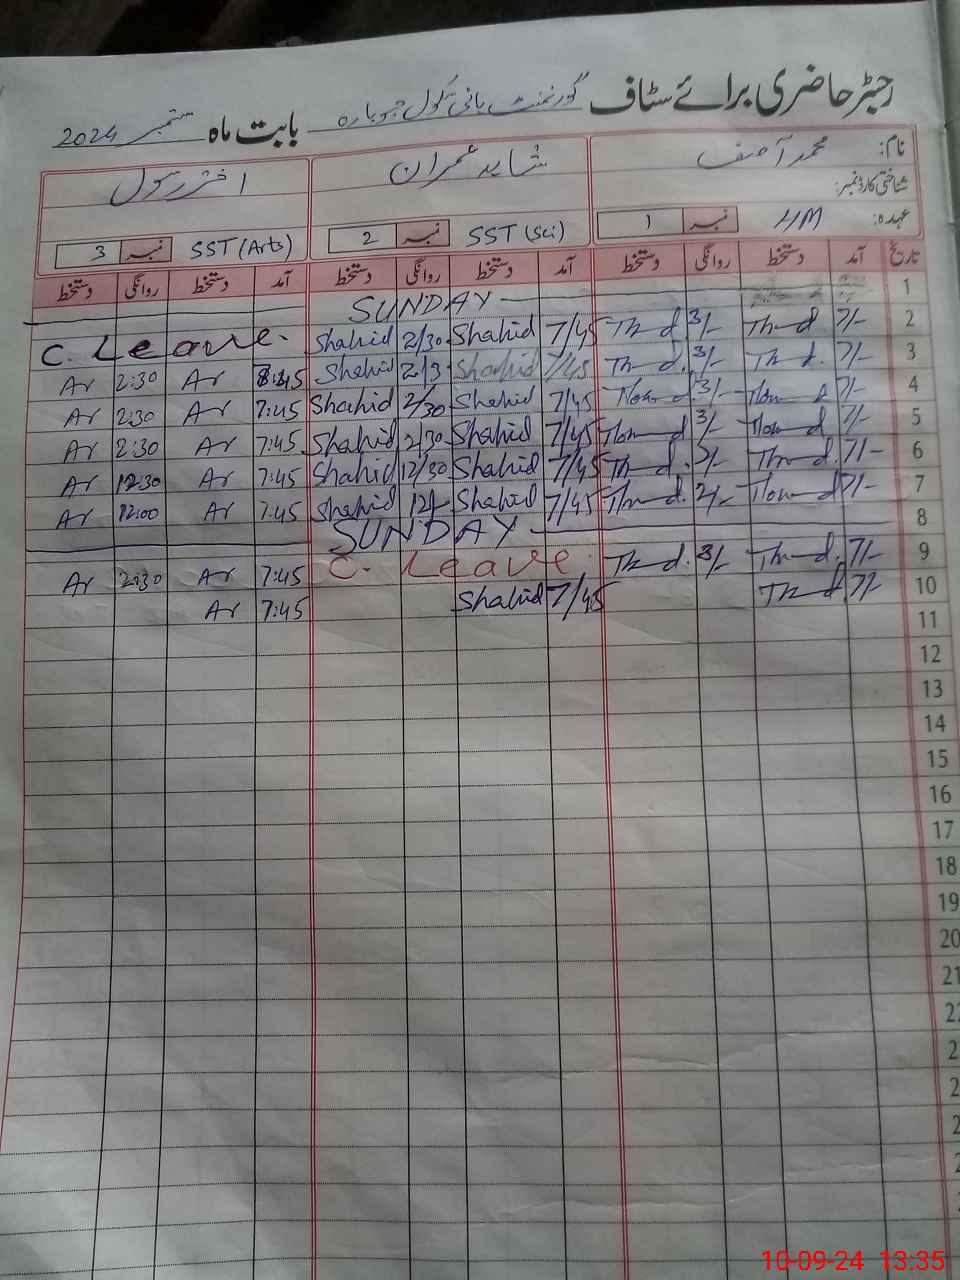 رجسٹر حاضری برائے سٹاف گورنمنٹ ہائی سکول جوبارہ بابت ماہ ستمبر 2024
نام: محمد آصف شاہد عمران اختر رسول
شناختی کارڈ نمبر:
عہدہ: HM نمبر 1 SST (Sci) نمبر 2 SST (Arts) نمبر 3
تاریخ آمد دستخط روانگی دستخط آمد دستخط روانگی دستخط آمد دستخط روانگی دستخط
1 SUNDAY
2 7/- 3/- 7/45 Shahid 2/30 Shahid C. Leave.
3 7/- 3/- 7/45 Shahid 2/3 Shahid 8:45 Ar 2:30 Ar
4 7/- 3/- 7/45 Shahid 2/30 Shahid 7:45 Ar 2:30 Ar
5 7/- 3/- 7/45 Shahid 2/30 Shahid 7:45 Ar 2:30 Ar
6 7/- 7/45 Shahid 12/30 Shahid 7:45 Ar 12:30 Ar
7 7/- 2/- 7/45 Shahid 12/- Shahid 7:45 Ar 12:00 Ar
8 SUNDAY
9 7/- 3/- C. Leave 7:45 Ar 2:30 Ar
10 7/- 7/45 Shahid 7:45 Ar
11
12
13
14
15
16
17
18
19
20
21
10-09-24 13:35